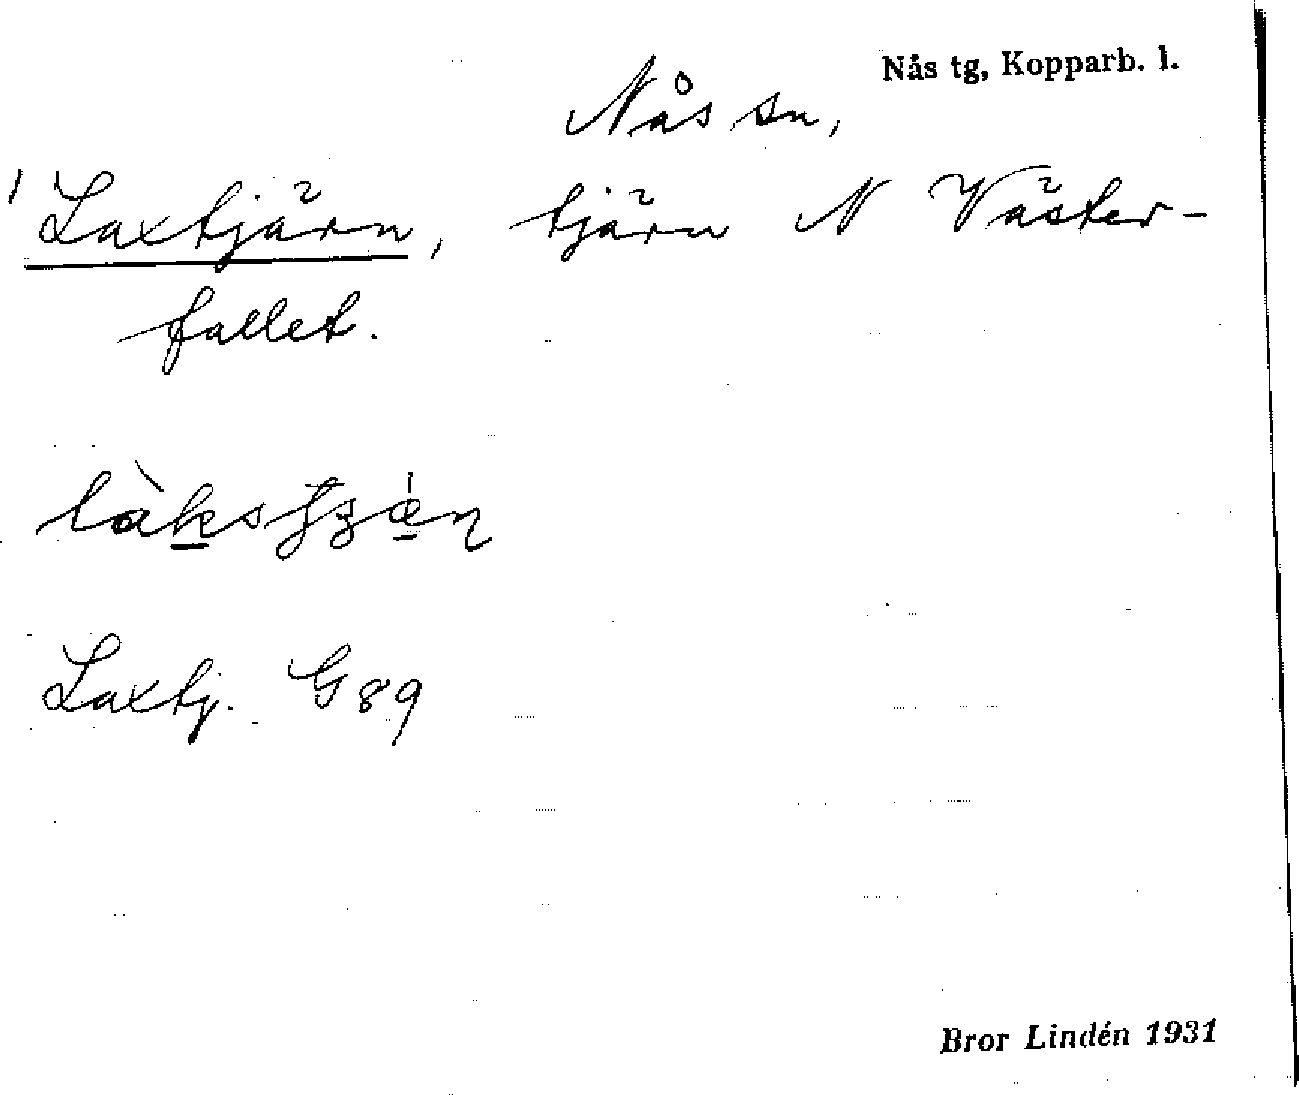 Nås tg, Kopparb. l.
Nås sn,
Laxtjärn, tjärn N Väster-
fallet.
Laxtj. G 89
Bror Lindén 1931